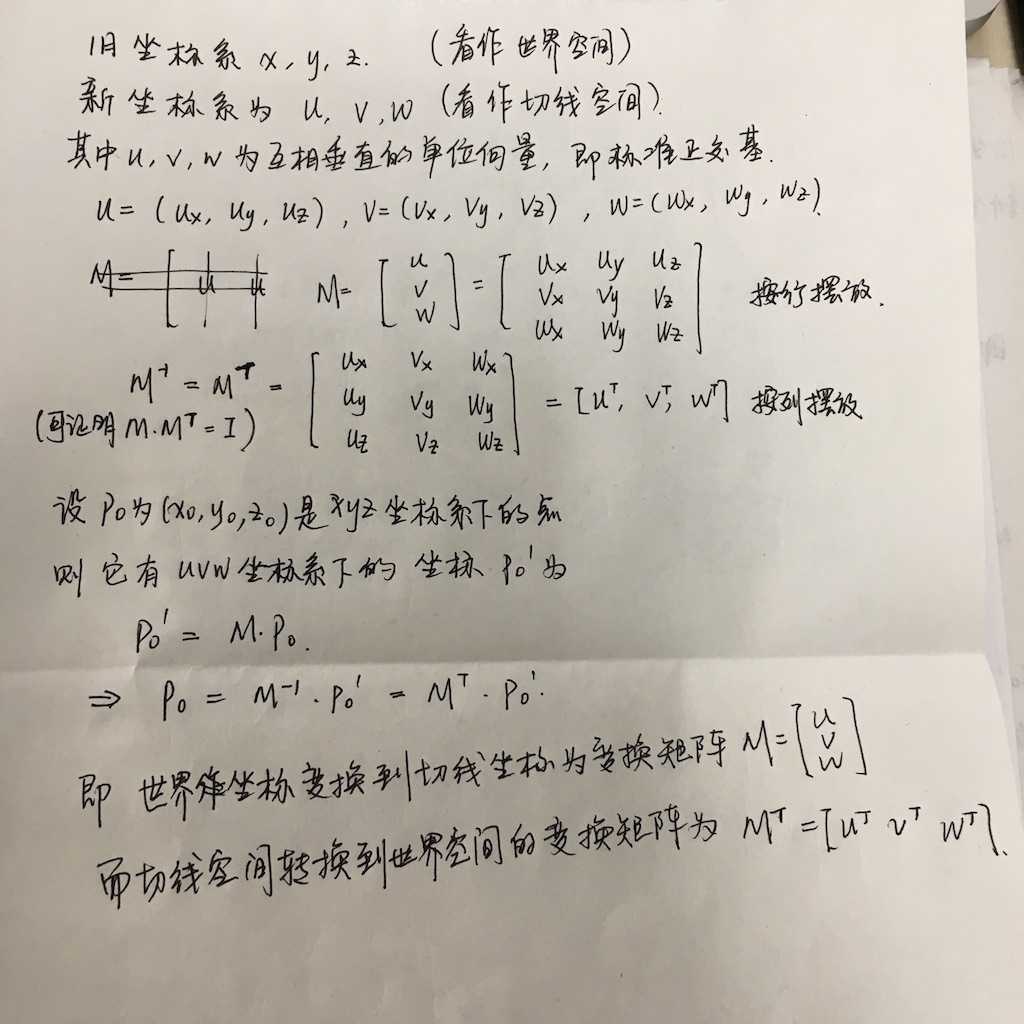 旧坐标系 x, y, z. (看作世界空间)
新坐标系为 u, v, w (看作切线空间).
其中 u, v, w 为互相垂直的单位向量, 即标准正交基.
u = (ux, uy, uz), v = (vx, vy, vz), w = (wx, wy, wz).
M = [ u u M = [ u v w ] = [ ux uy uz
vx vy vz
wx wy wz ] 按行摆放.
M⁻¹ = Mᵀ = [ ux vx wx
uy vy wy
uz vz wz ] = [uᵀ, vᵀ, wᵀ] 按列摆放
(可证明 M·Mᵀ = I)
设 P₀为 (x₀, y₀, z₀) 是 xyz 坐标系下的点
则 它有 uvw 坐标系下的 坐标 P₀' 为
P₀' = M·P₀.
⇒ P₀ = M⁻¹·P₀' = Mᵀ·P₀'.
即 世界坐标变换到切线坐标为变换矩阵 M = [ u v w ]
而切线空间转换到世界空间的变换矩阵为 Mᵀ = [uᵀ vᵀ wᵀ].